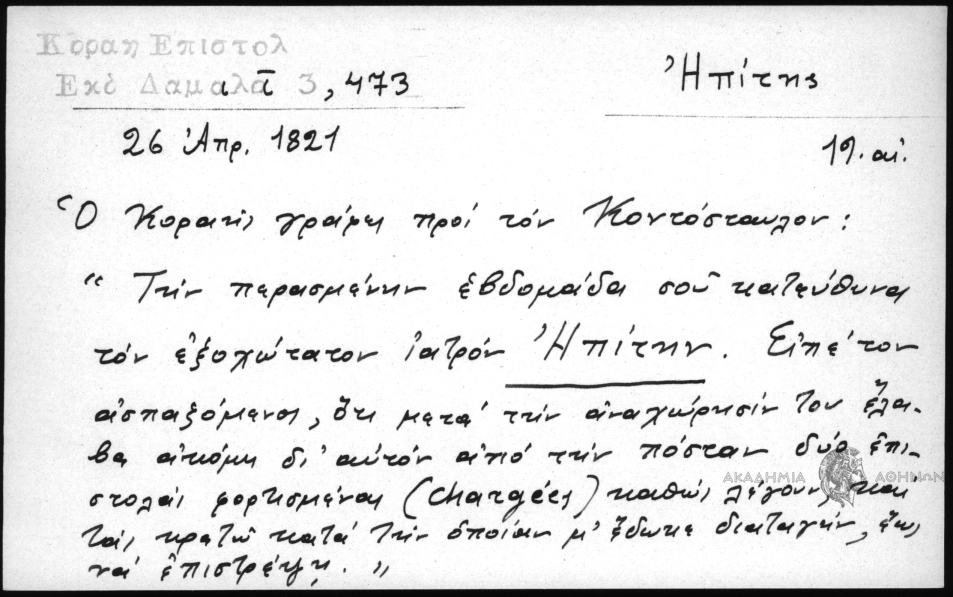 Κοραη Επιστολ
Εκδ Δαμαλά τ̄ 3, 473
Ἠπίτης
26 Ἀπρ. 1821
19. αἰ.
Ὁ Κοραῆς γράφει πρὸς τόν Κοντόσταυλον:
“ Τήν περασμένην ἑβδομάδα σοῦ κατεύθυνα
τόν ἐξοχώτατον ἰατρόν Ἠπίτην. Εἰπέ τον
ἀσπαζόμενος, ὅτι μετά τήν ἀναχώρησίν του ἔλα-
βα ἀκόμη δι' αὐτόν ἀπό τήν πόσταν δύο ἐπι-
στολάς φορτισμένας (chargées) καθώς λέγουν, καί
τάς κρατῶ κατά τήν ὁποίαν μ' ἔδωκε διαταγήν, ἕως
νά ἐπιστρέψῃ. ”
ΑΚΑΔΗΜΙΑ ΑΘΗΝΩΝ